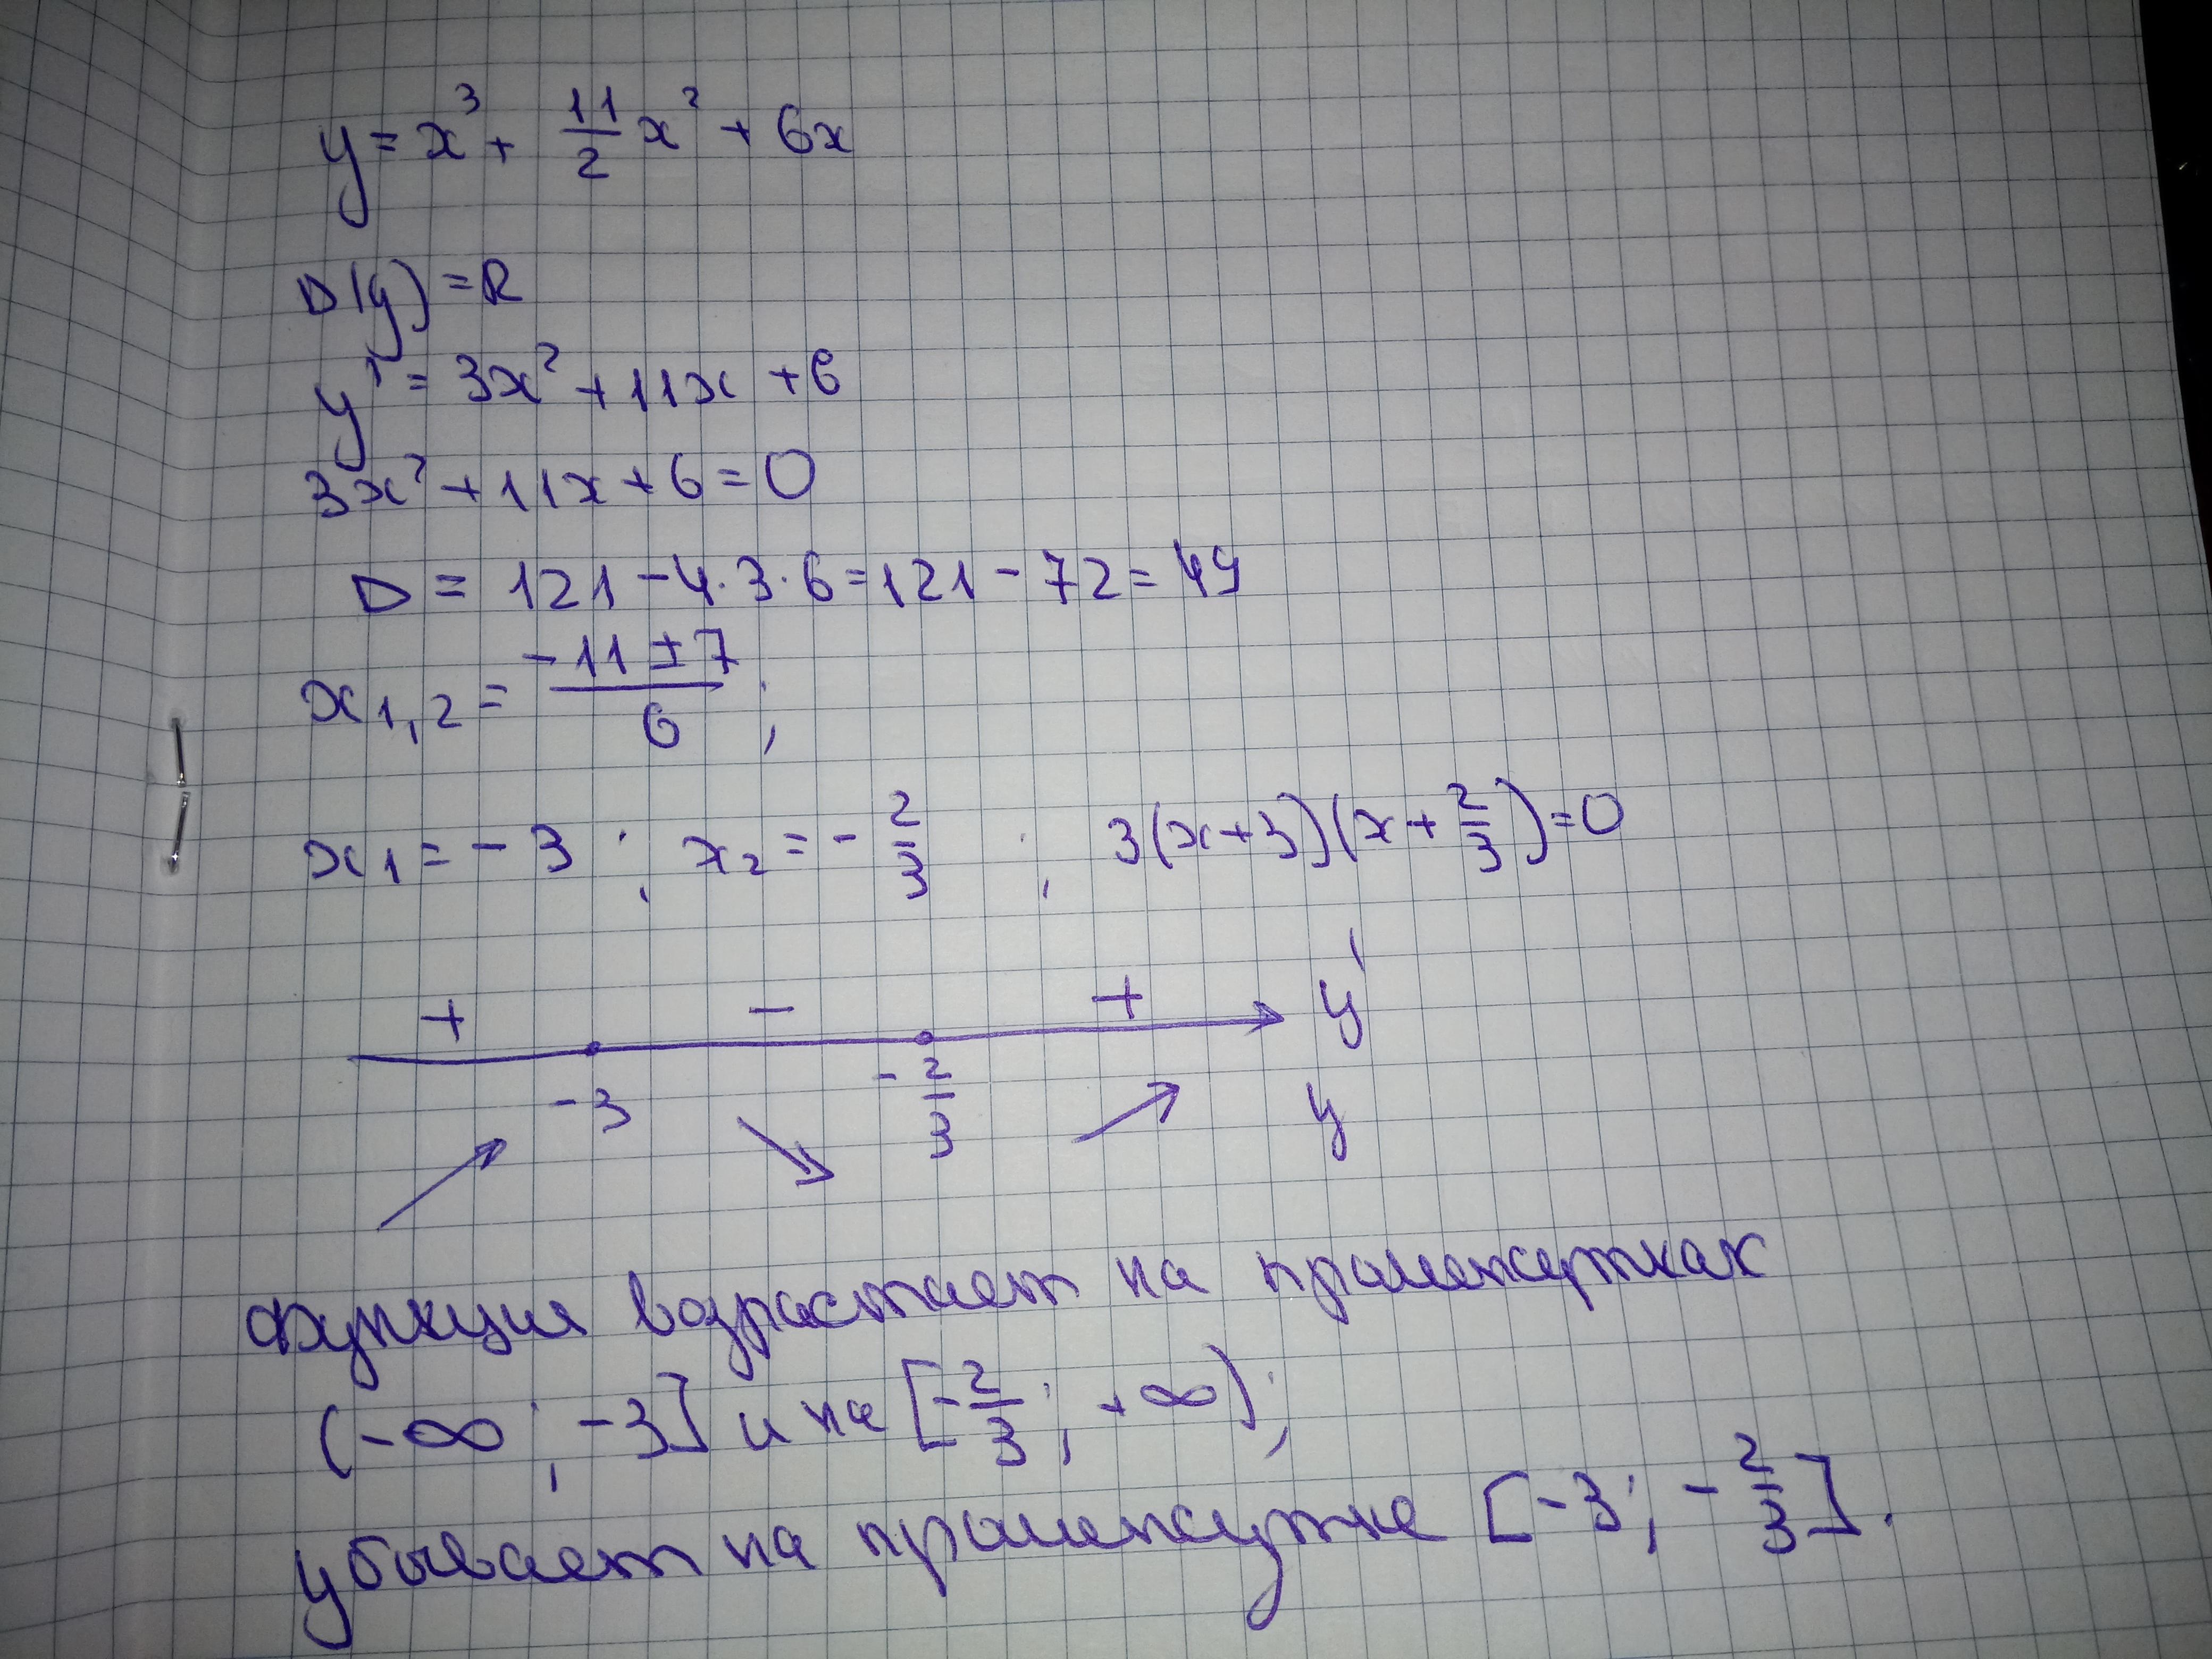 y = x³ + 11/2 x² + 6x
D(y) = R
y' = 3x² + 11x + 6
3x² + 11x + 6 = 0
D = 121 - 4·3·6 = 121 - 72 = 49
x₁,₂ = (-11 ± 7)/6 ;
x₁ = -3 ; x₂ = -2/3 ; 3(x+3)(x+2/3) = 0
+ - + y'
-3 -2/3 y
Функция возрастает на промежутках
(-∞; -3] и на [-2/3; +∞);
убывает на промежутке [-3; -2/3].